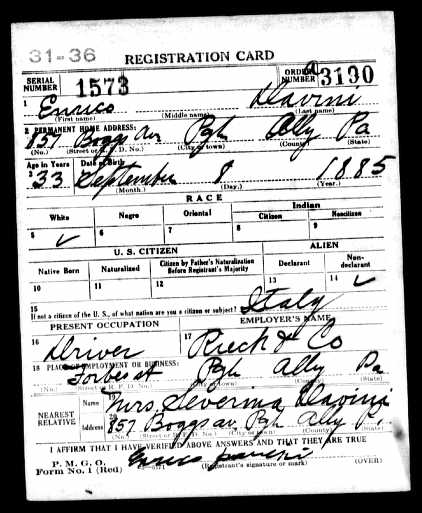 31-36 REGISTRATION CARD
SERIAL NUMBER 1573 ORDER NUMBER A 3190
1 Enrico Davini
(First name) (Middle name) (Last name)
2 PERMANENT HOME ADDRESS:
857 Boggs Av Pgh Ally Pa
(No.) (Street or R. F. D. No.) (City or town) (County) (State)
Age in Years Date of Birth
3 33 September 8 1885
(Month.) (Day.) (Year.)
RACE
White Negro Oriental Indian
Citizen Noncitizen
5 ✓ 6 7 8 9
U. S. CITIZEN ALIEN
Native Born Naturalized Citizen by Father's Naturalization Before Registrant's Majority Declarant Non-declarant
10 11 12 13 14 ✓
15 If not a citizen of the U. S., of what nation are you a citizen or subject? Italy
PRESENT OCCUPATION EMPLOYER'S NAME
16 Driver 17 Rieck & Co
18 PLACE OF EMPLOYMENT OR BUSINESS:
Forbes st Pgh Ally Pa
(No.) (Street or R. F. D. No.) (City or town) (County) (State)
NEAREST RELATIVE Name Mrs Severina Davini
Address 857 Boggs av. Pgh Ally P.
(No.) (Street or R. F. D. No.) (City or town) (County) (State)
I AFFIRM THAT I HAVE VERIFIED ABOVE ANSWERS AND THAT THEY ARE TRUE
P. M. G. O.
Form No. 1 (Red) Enrico
(Registrant's signature or mark) (OVER)